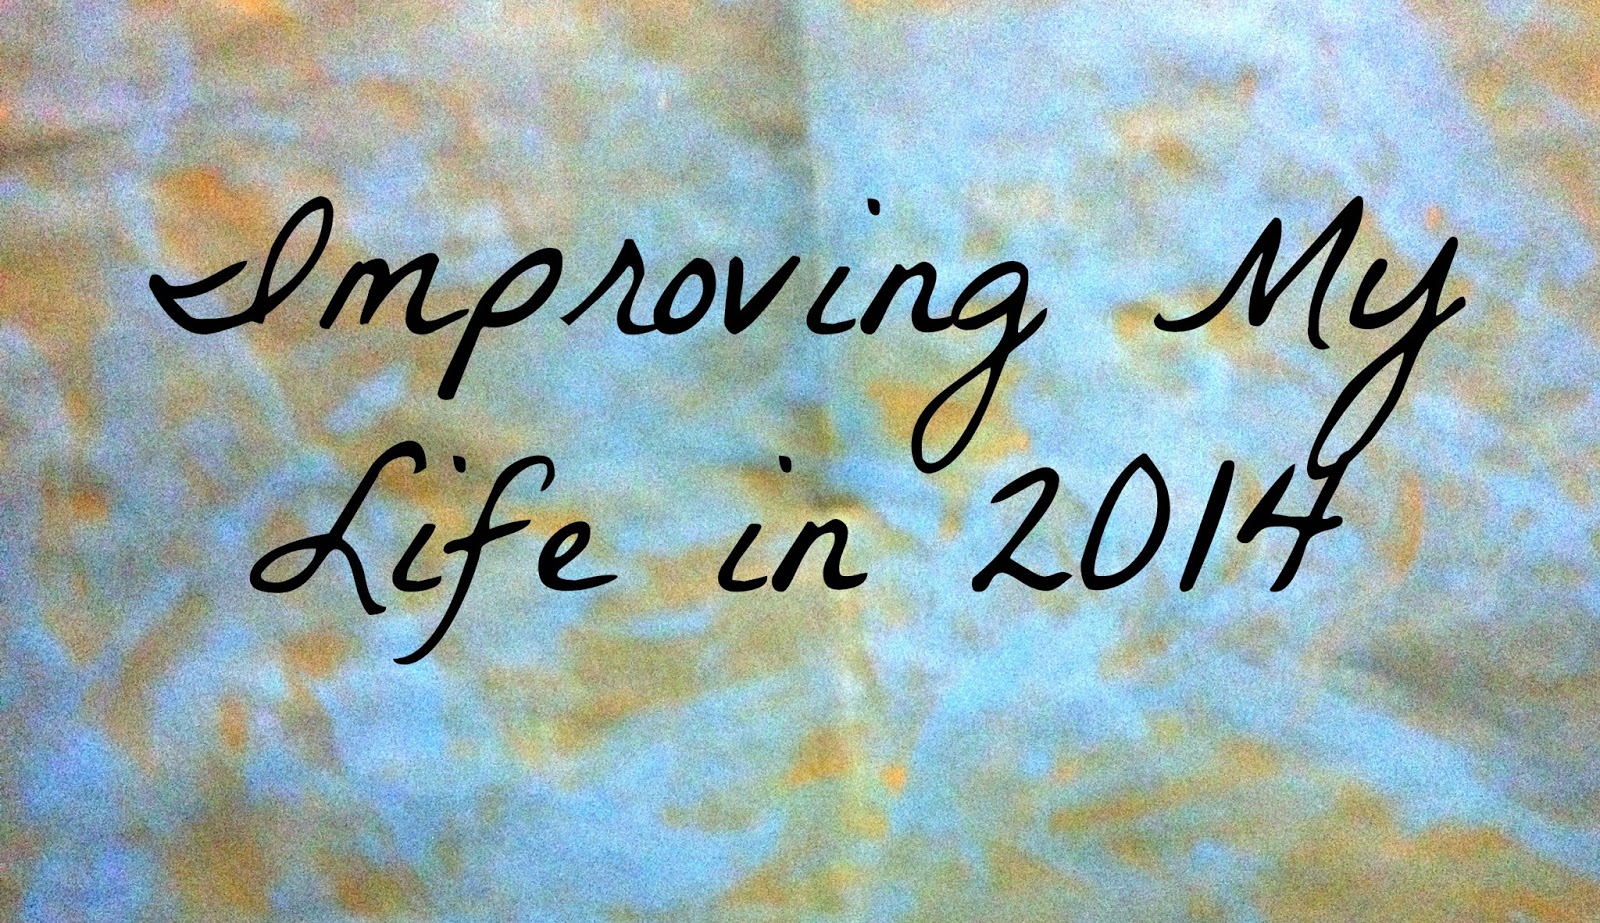 Improving My
Life in 2014